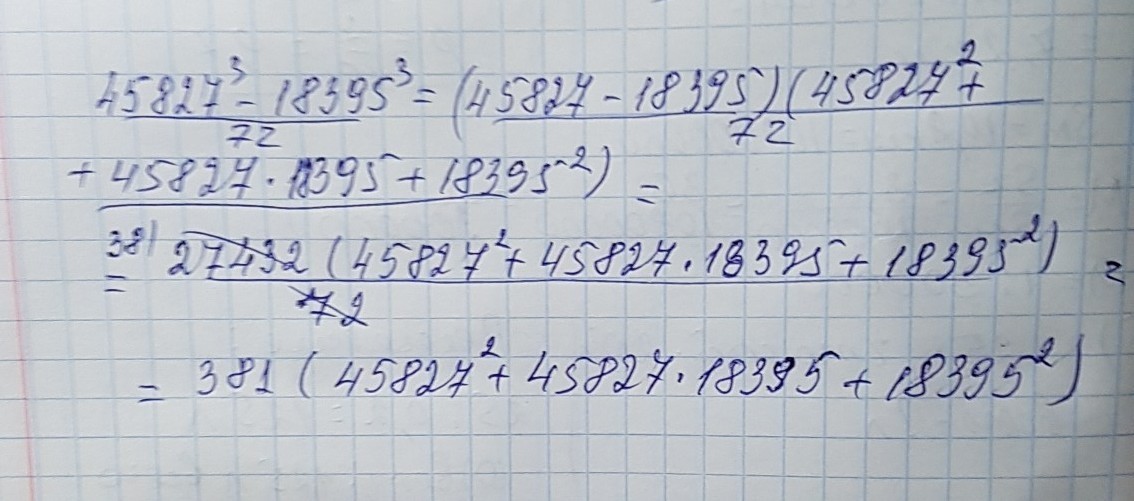 45827³ - 18395³ = (45827 - 18395)(45827² +
72 72
+ 45827 · 18395 + 18395²) =
381
= 27432 (45827² + 45827 · 18395 + 18395²) =
72
= 381 (45827² + 45827 · 18395 + 18395²)